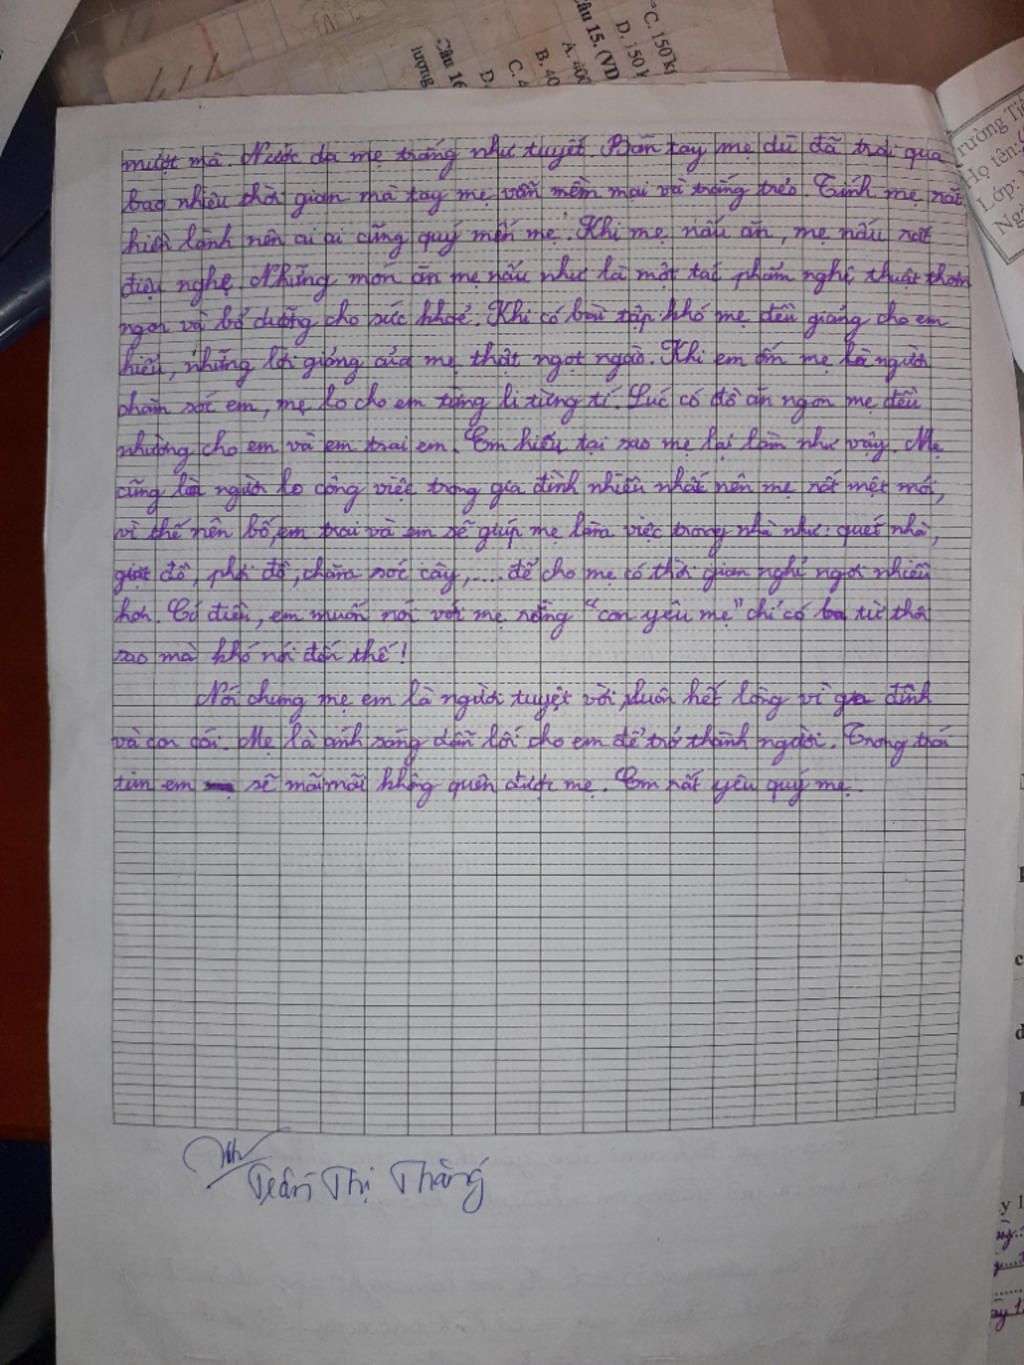 C. 150 k
D. 150 k
Câu 15. (VD
A. 400
B. 40
C. 4
D.
Câu 16
lượng
rường Ti
Họ tên:
Lớp:
Ng
mượt mà. Nước da mẹ trắng như tuyết. Bàn tay mẹ dù đã trải qua
bao nhiêu thời gian mà tay mẹ vẫn mềm mại và trắng trẻo. Tính mẹ rất
hiền lành nên ai ai cũng quý mến mẹ. Khi mẹ nấu ăn, mẹ nấu rất
điệu nghệ. Những món ăn mẹ nấu như là một tác phẩm nghệ thuật thơm
ngon và bổ dưỡng cho sức khoẻ. Khi có bài tập khó mẹ đều giảng cho em
hiểu, những lời giảng của mẹ thật ngọt ngào. Khi em ốm mẹ là người
chăm sóc em, mẹ lo cho em từng li từng tí. Lúc có đồ ăn ngon mẹ đều
nhường cho em và em trai em. Em hiểu tại sao mẹ lại làm như vậy. Mẹ
cũng là người lo công việc trong gia đình nhiều nhất nên mẹ rất mệt mỏi,
vì thế nên bố, em trai và em sẽ giúp mẹ làm việc trong nhà như: quét nhà,
giặt đồ, phơi đồ, chăm sóc cây,.... để cho mẹ có thời gian nghỉ ngơi nhiều
hơn. Có điều, em muốn nói với mẹ rằng "con yêu mẹ" chỉ có ba từ thôi
sao mà khó nói đến thế!
Nói chung mẹ em là người tuyệt vời, luôn hết lòng vì gia đình
và con cái. Mẹ là ánh sáng dẫn lối cho em để trở thành người. Trong trái
tim em sẽ mãi mãi không quên được mẹ. Em rất yêu quý mẹ.
Trần Thị Thắng